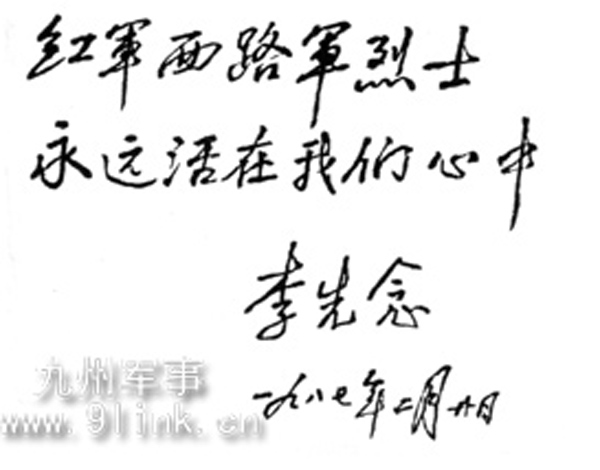 红軍西路軍烈士
永远活在我们心中
李先念
一九八七年二月廿日
九州军事
www.9link.cn